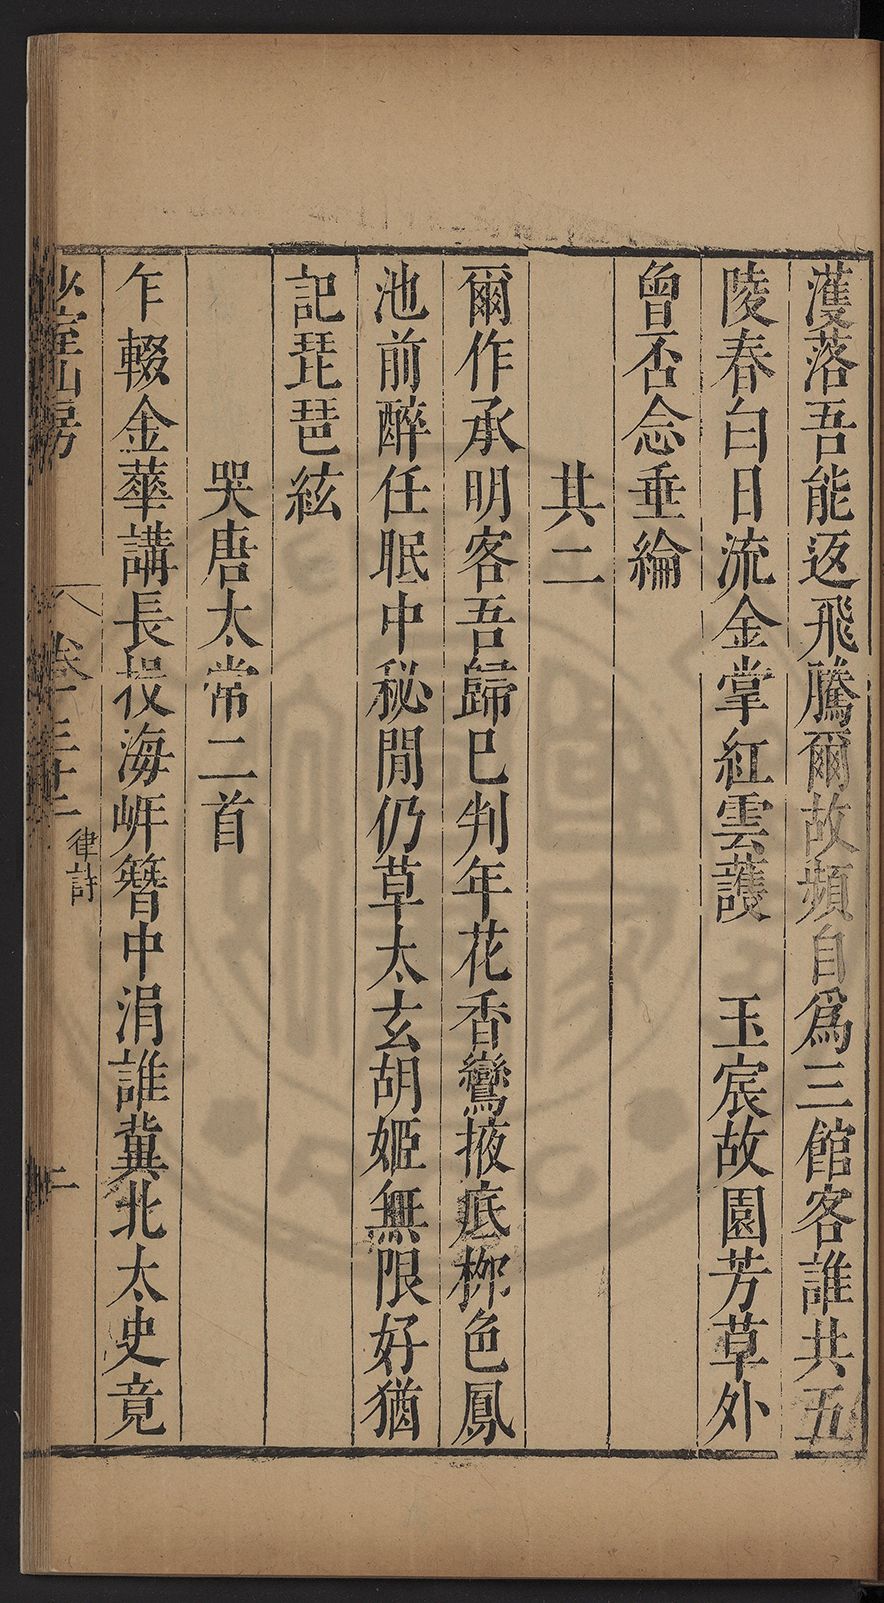 濩落吾能返飛騰爾故頻自爲三館客誰共五
陵春白日流金掌紅雲護　玉宸故園芳草外
曾否念垂綸
其二
爾作承明客吾歸已判年花香鸞掖底柳色鳳
池前醉任眠中秘閒仍草太玄胡姬無限好猶
記琵琶絃
哭唐太常二首
乍輟金華講長投海岸簪中涓誰冀北太史竟
山房
卷
律詩
二